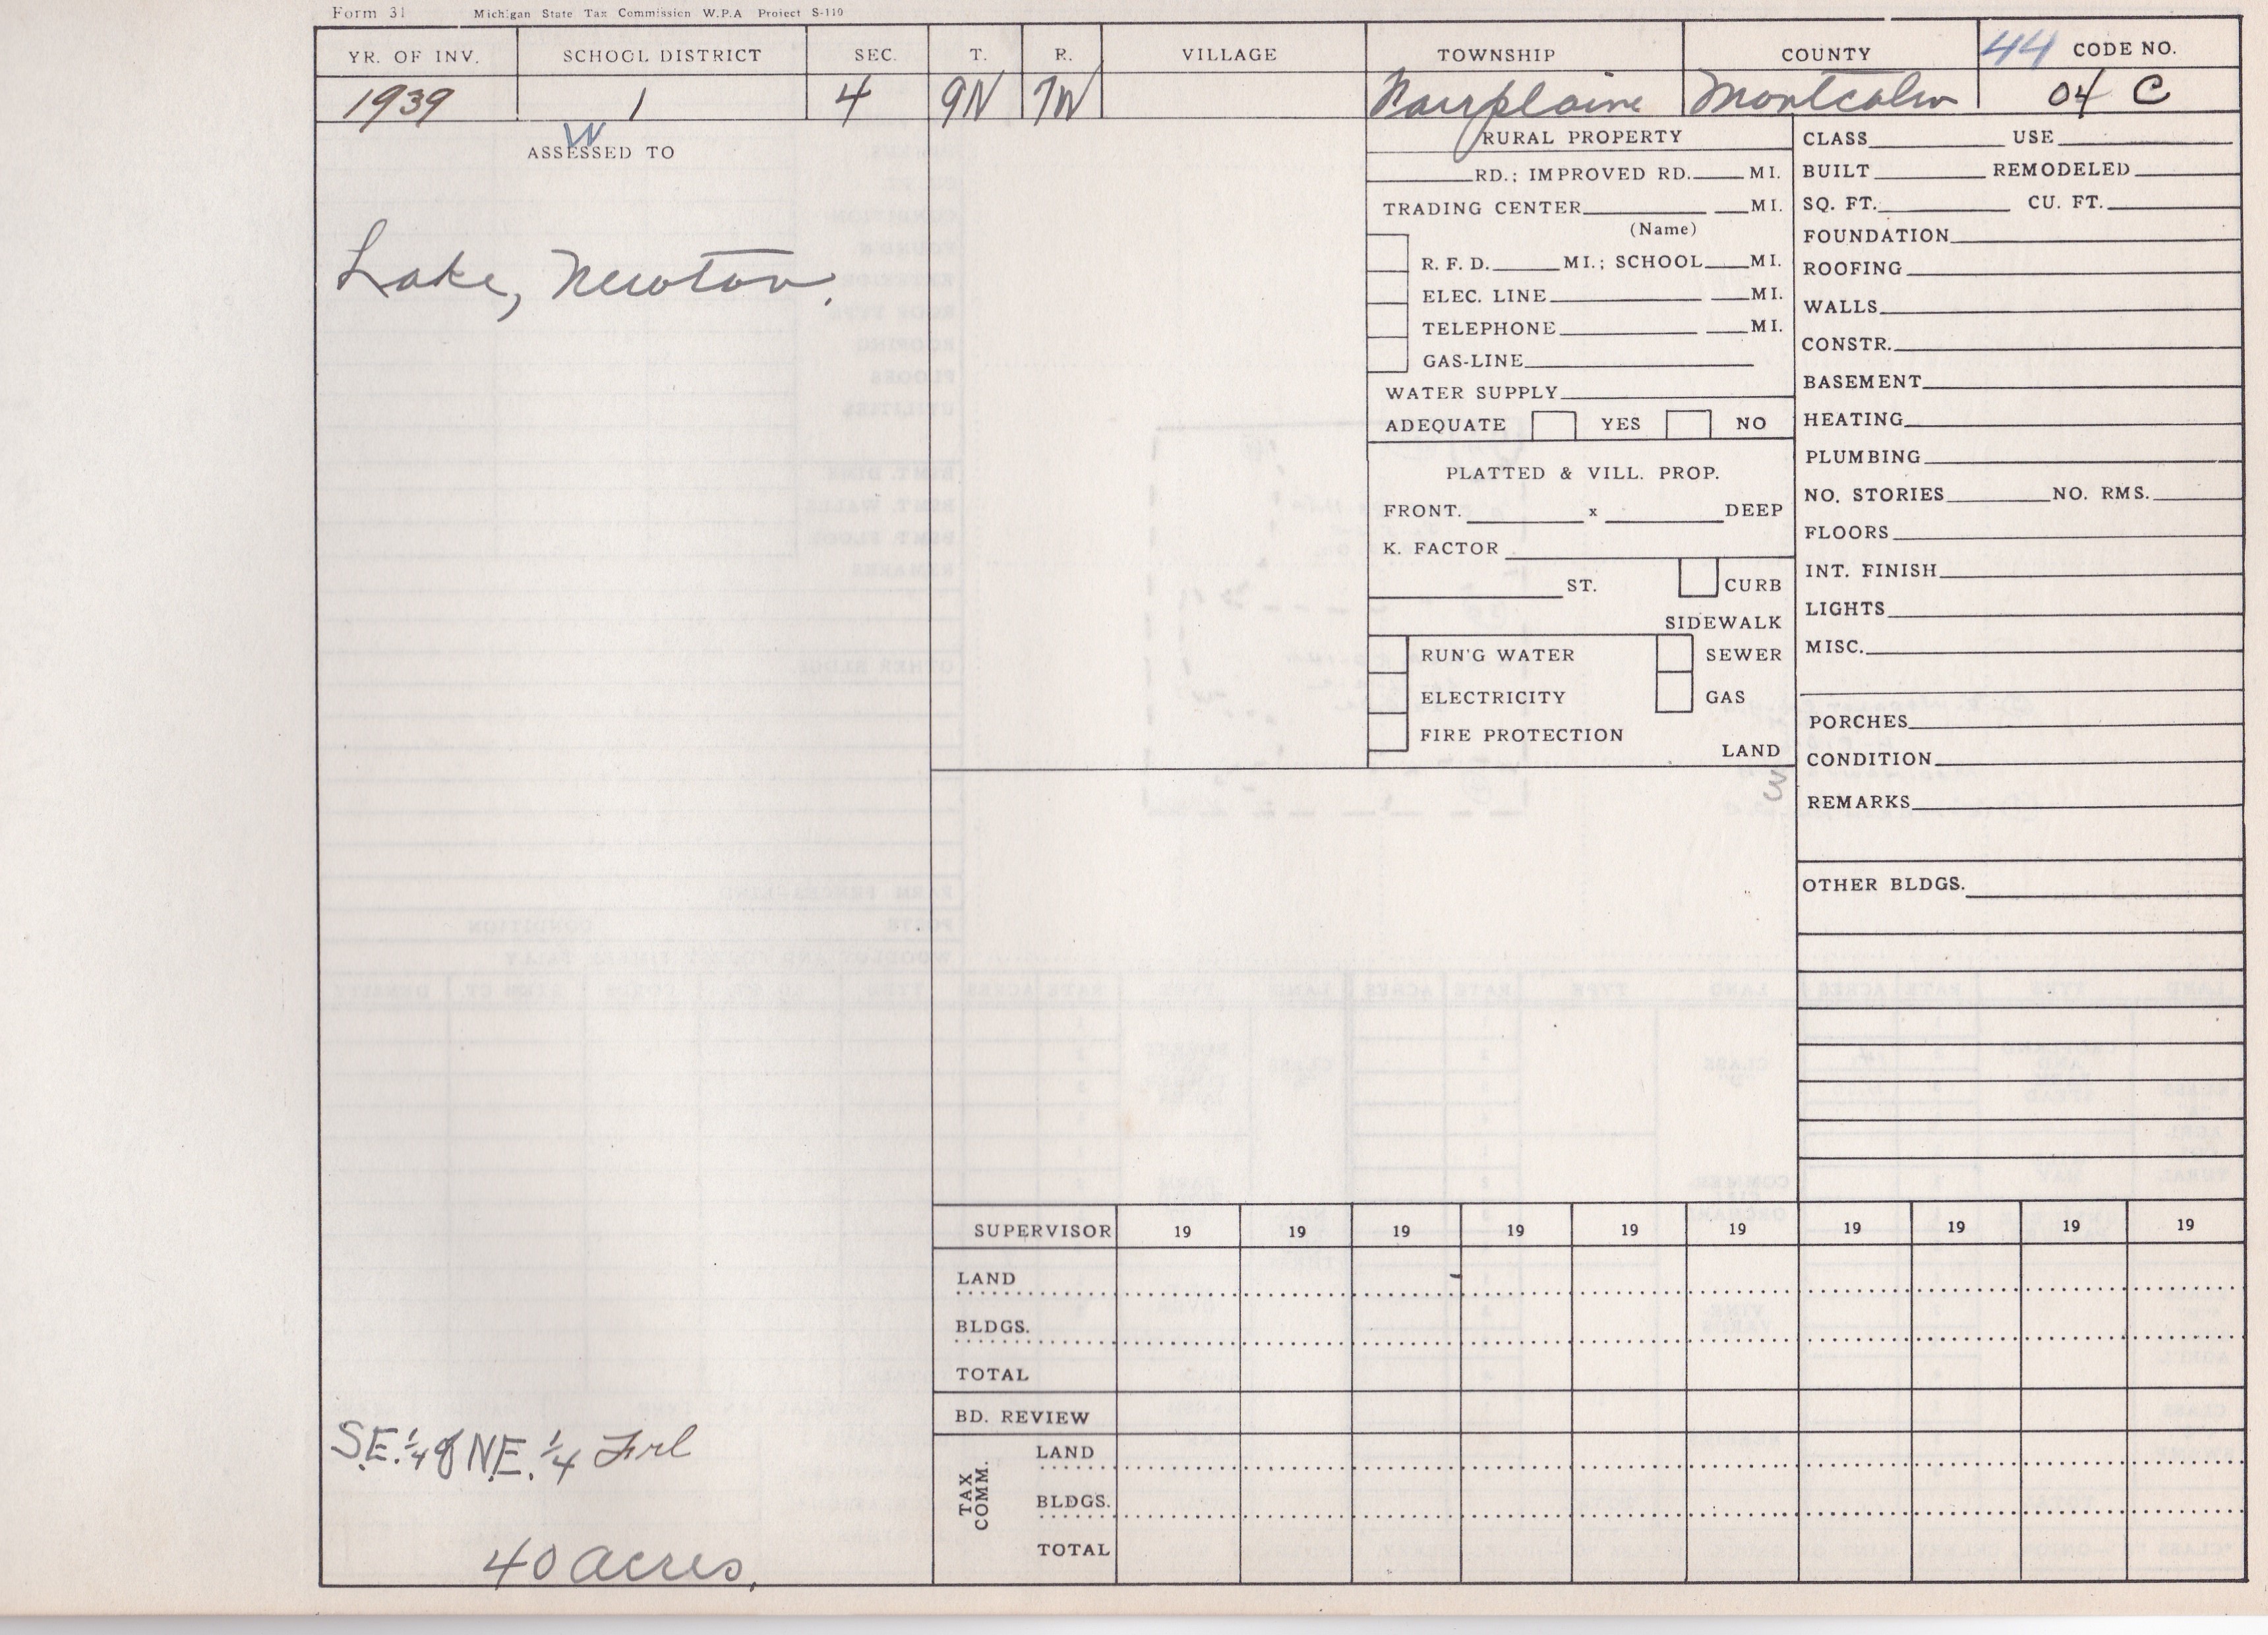 Form 31 Michigan State Tax Commission W.P.A Project S-110
YR. OF INV. SCHOOL DISTRICT SEC. T. R. VILLAGE TOWNSHIP COUNTY 44 CODE NO.
1939 1 4 9N 7W Fairplaine Montcalm 04 C
W
ASSESSED TO
Lake, Newton.
S.E. 1/4 of N.E. 1/4 Frl
40 acres.
RURAL PROPERTY
RD.; IMPROVED RD. MI.
TRADING CENTER MI.
(Name)
R. F. D. MI.; SCHOOL MI.
ELEC. LINE MI.
TELEPHONE MI.
GAS-LINE
WATER SUPPLY
ADEQUATE YES NO
PLATTED & VILL. PROP.
FRONT. x DEEP
K. FACTOR
ST. CURB
SIDEWALK
RUN'G WATER SEWER
ELECTRICITY GAS
FIRE PROTECTION
LAND
3
CLASS USE
BUILT REMODELED
SQ. FT. CU. FT.
FOUNDATION
ROOFING
WALLS
CONSTR.
BASEMENT
HEATING
PLUMBING
NO. STORIES NO. RMS.
FLOORS
INT. FINISH
LIGHTS
MISC.
PORCHES
CONDITION
REMARKS
OTHER BLDGS.
SUPERVISOR 19 19 19 19 19 19 19 19 19 19
LAND
BLDGS.
TOTAL
BD. REVIEW
TAX COMM.
LAND
BLDGS.
TOTAL